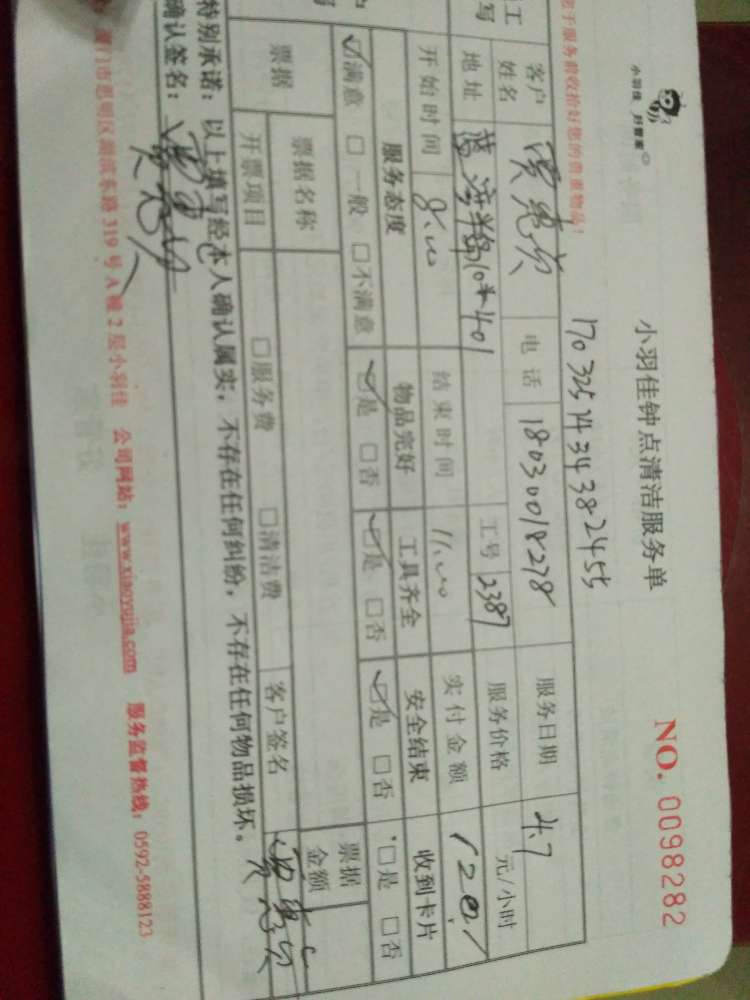 小羽佳 好管家
小羽佳钟点清洁服务单
NO. 0098282
1703251434382455
服务前收拾好您的贵重物品!
客户姓名 电话 18030018278 服务日期 4.7
地址 10#401 工号 2387 服务价格 元/小时
开始时间 8:00 结束时间 11:00 实付金额 120.
服务态度 物品完好 工具齐全 安全结束 收到卡片
☑满意 □一般 □不满意 ☑是 □否 ☑是 □否 ☑是 □否 □是 □否
票据 票据名称 票据金额
开票项目 □服务费 □清洁费 客户签名
特别承诺:以上填写经本人确认属实,不存在任何纠纷,不存在任何物品损坏。
确认签名:
厦门市思明区湖滨东路 319 号 A 幢 2 层小羽佳 公司网站:www.xiaoyujia.com 服务监督热线:0592-5888123